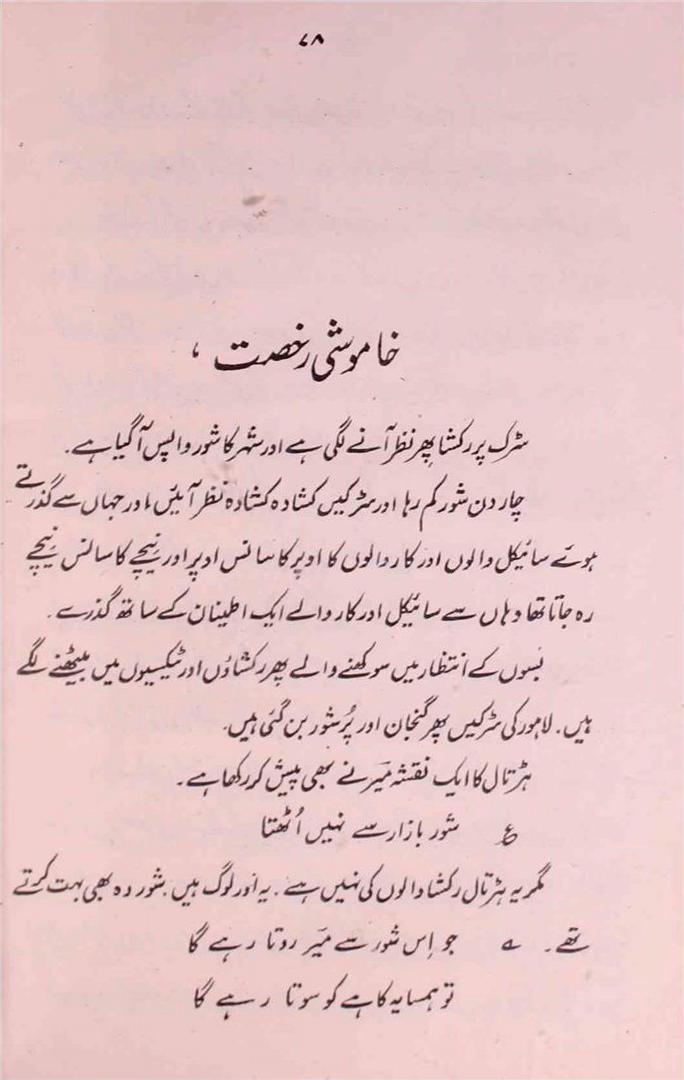 ۷۸
خاموشی رخصت ،
سڑک پر رکشا پھر نظر آنے لگی ہے اور شہر کا شور واپس آ گیا ہے۔
چار دن شور کم رہا اور سڑکیں کشادہ کشادہ نظر آئیں، اور جہاں سے گذرتے
ہوئے سائیکل والوں اور کار والوں کا اوپر کا سانس اوپر اور نیچے کا سانس نیچے
رہ جاتا تھا وہاں سے سائیکل اور کار والے ایک اطینان کے ساتھ گذرے۔
بسوں کے انتظار میں سوکھنے والے پھر رکشاؤں اور ٹیکسیوں میں بیٹھنے لگے
ہیں۔ لاہور کی سڑکیں پھر گنجان اور پُر شور بن گئی ہیں۔
ہڑتال کا ایک نقشہ میرؔ نے بھی پیش کر رکھا ہے۔
ع شور بازار سے نہیں اُٹھتا
مگر یہ ہڑتال رکشا والوں کی نہیں ہے۔ یہ اور لوگ ہیں۔ شور وہ بھی بہت کرتے
تھے۔ ؎ جو اِس شور سے میرؔ روتا رہے گا
تو ہمسایہ کاہے کو سوتا رہے گا